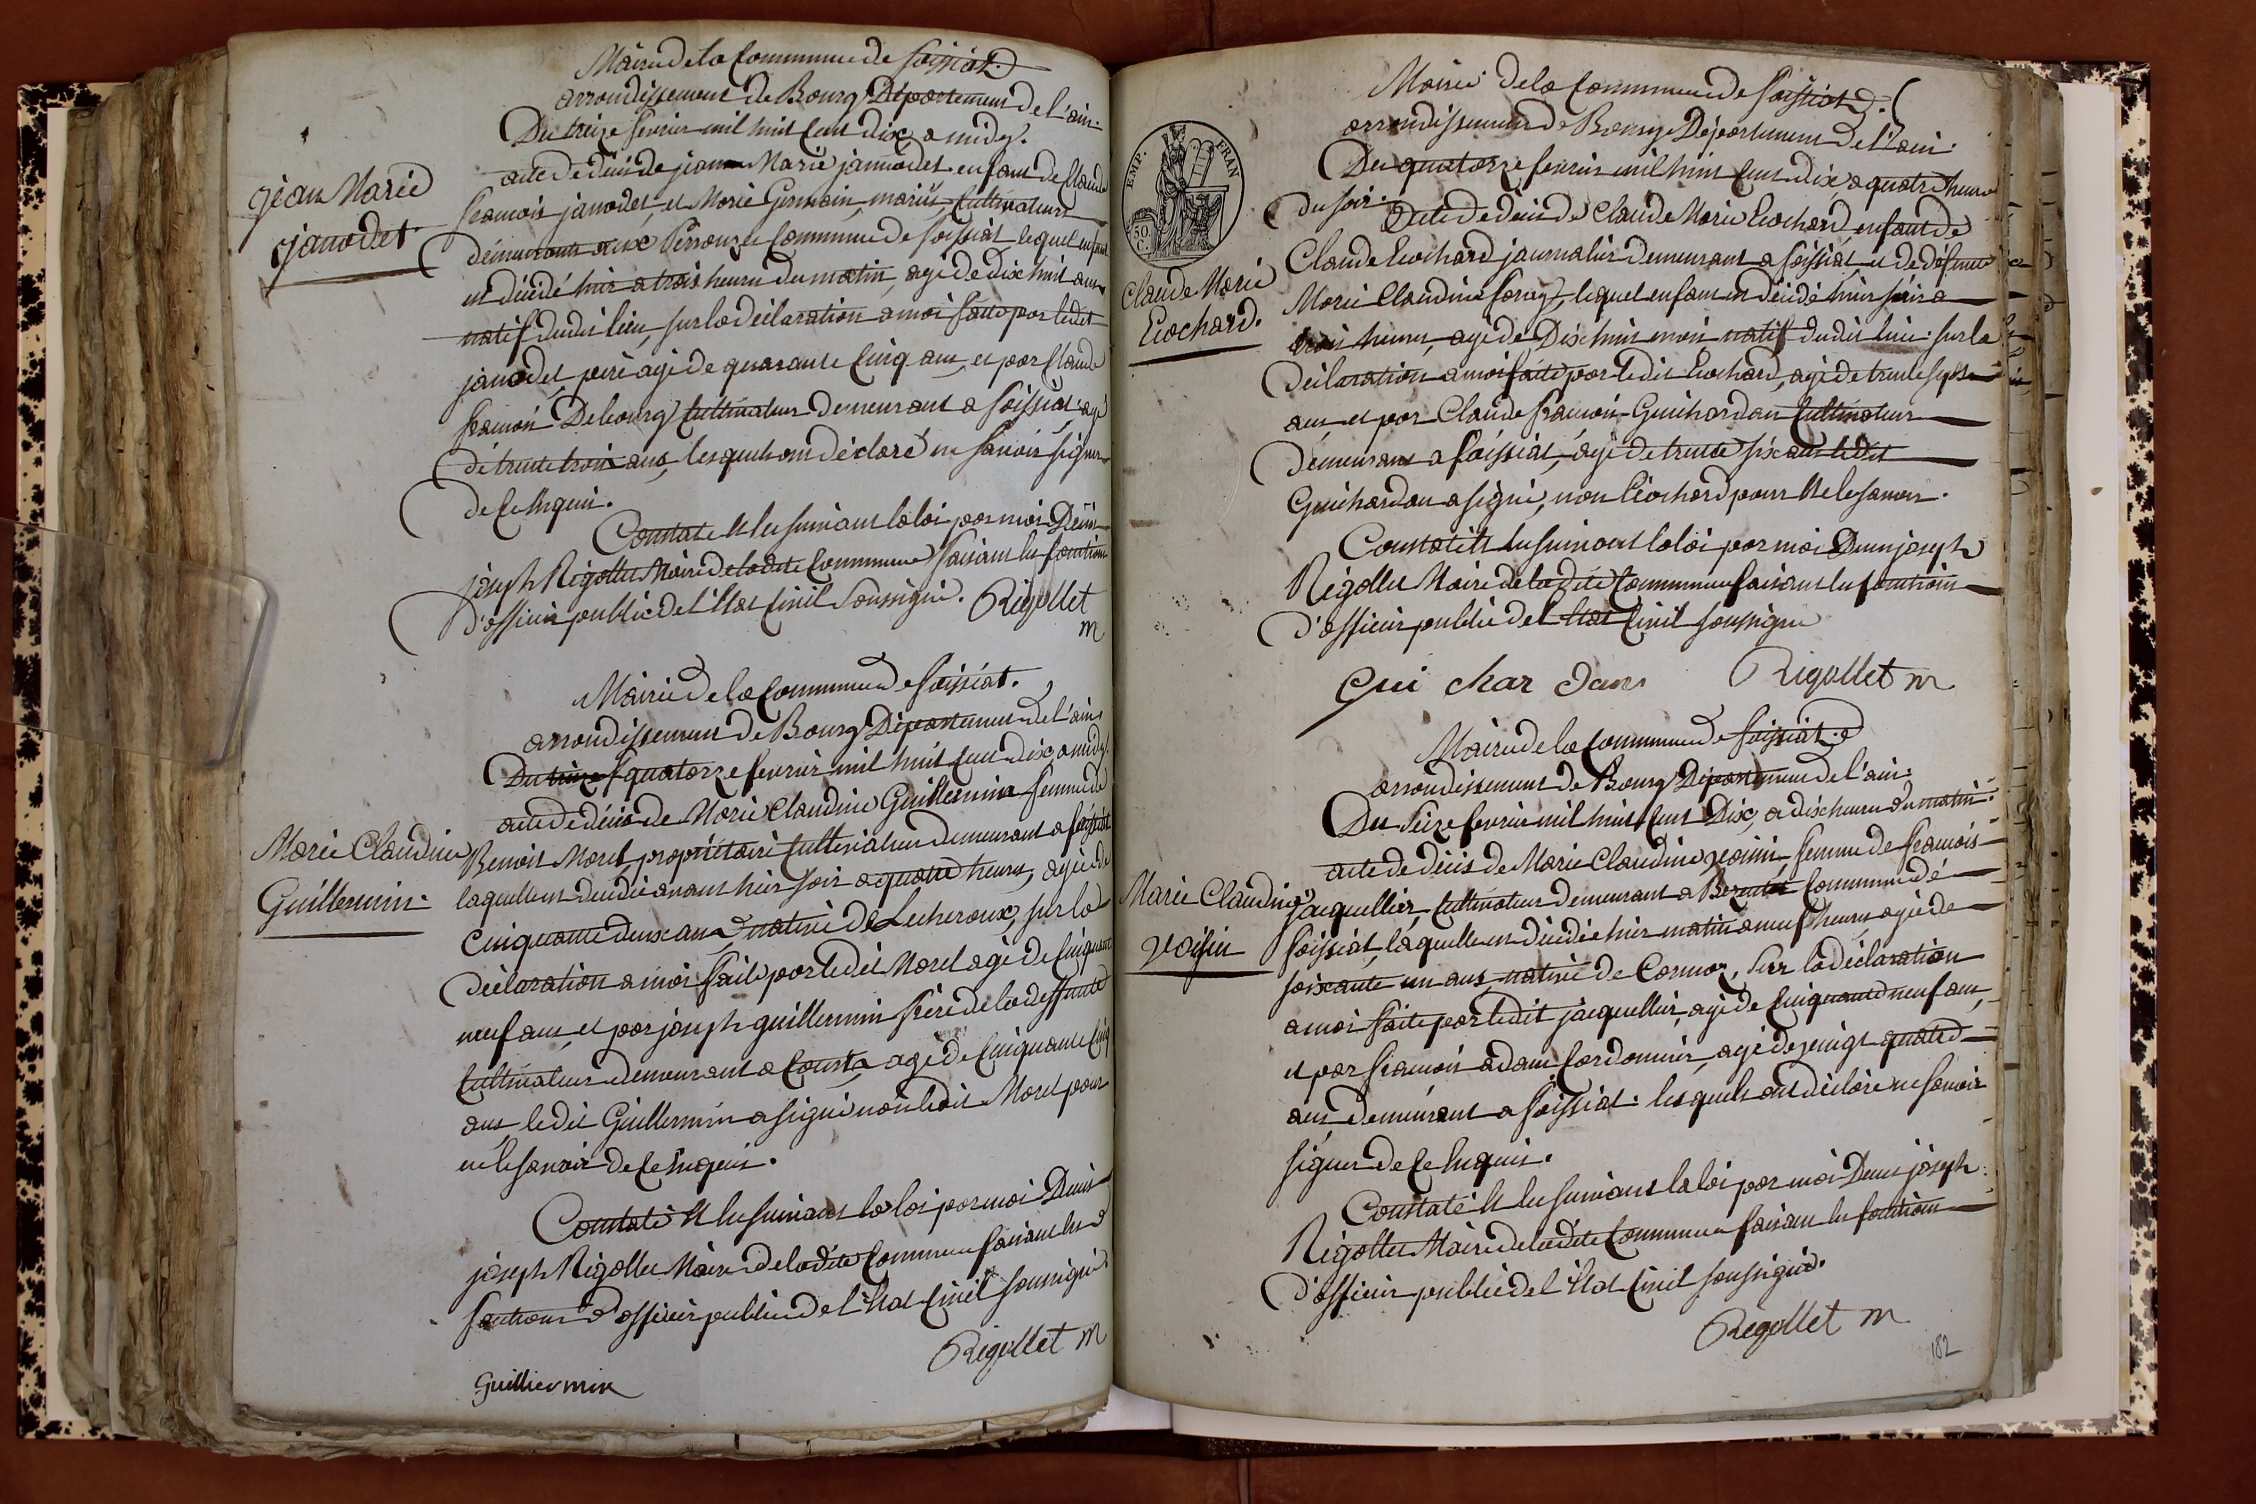 Mairie de la Commune de Foissiat.
arrondissement de Bourg Département de l'ain.
Du treize fevrier mil huit Cent dix a midy.
acte de décès de jean Marie janodet enfant de Claude
jean Marie
janodet
francois janodet, et Marie Germain, mariés, Cultivateurs
demeurants aux Perrouzes Commune de foissiat, lequel enfant
est décédé hier a trois heures du matin, agé de dix huit ans
natif dudit lieu, sur la déclaration a moi faite par ledit
janodet, père agé de quarante Cinq ans, et par Claude
francois Debourg Cultivateur demeurant a foissiat agé
de trente trois ans, lesquels ont déclaré ne savoir signer
de Ce Enquis.
Constaté Et lu suivant la loi par moi Denis
joseph Rigollet Maire de la dite Commune faisant les fonctions
d'officier public de l'Etat Civil soussigné. Rigollet
m
Mairie de la Commune de foissiat.
arrondissement de Bourg Département de l'ain
Du treize quatorze fevrier mil huit Cent dix a midy
acte de décès de Marie Claudine Guillermin femme de
Marie Claudine
Guillermin.
Benoit Morel, propriétaire Cultivateur demeurant a foissiat
laquelle est décédée avant hier soir a quatre heures, agée de
Cinquante deux ans native de Lescheroux, sur la
déclaration a moi faite par ledit Morel agé de Cinquante
neuf ans, et par joseph guillermin frère de la deffunte
Cultivateur demeurant a Cousta agé de Cinquante Cinq
ans, ledit Guillermin a signé non ledit Morel pour
ne le savoir de Ce Enquis.
Constaté Et lu suivant la loi par moi Denis
joseph Rigollet Maire de la dite Commune faisant les
fonctions d'officier public de l'Etat Civil soussigné
Rigollet m
Guilliermin
Mairie de la Commune de foissiat.
arrondissement de Bourg Département de l'ain.
Du quatorze fevrier mil huit Cent dix a quatre heures
du soir.
EMP. FRAN
50 C.
acte de décès de Claude Marie Eochard, enfant de
Claude Eochard journalier demeurant a foissiat et de défunte
Claude Marie
Eochard.
Marie Claudine forey, lequel enfant est décédé hier soir a
trois heures, agé de Dix huit mois natif dudit lieu. sur la
déclaration a moi faite par ledit Eochard, agé de trente sept
ans et par Claude francois Guichardan Cultivateur
demeurant a foissiat, agé de trente six ans ledit
Guichardan a signé, non Eochard pour ne le savoir.
Constaté Et lu suivant la loi par moi Denis joseph
Rigollet Maire de la dite Commune faisant les fonctions
d'officier public de l'Etat Civil soussigné
Gui char dans Rigollet m
Mairie de la Commune de foissiat.
arrondissement de Bourg Département de l'ain.
Du seize fevrier mil huit Cent Dix, a dix heures du matin.
acte de décès de Marie Claudine voisin femme de francois
Marie Claudine
voisin
jacquellier, Cultivateur demeurant a Commune de
foissiat, laquelle est décédée hier matin a neuf heures, agée de
soixante un ans, native de Cormoz, sur la déclaration
a moi faite par ledit jacquellier, agé de Cinquante neuf ans,
et par francois adam Cordonnier, agé de vingt quatre
ans, demeurant a foissiat. lesquels ont déclaré ne savoir
signer de Ce Enquis.
Constaté Et lu suivant la loi par moi Denis joseph
Rigollet Maire de la dite Commune faisant les fonctions
d'officier public de l'Etat Civil soussigné.
Rigollet m
182